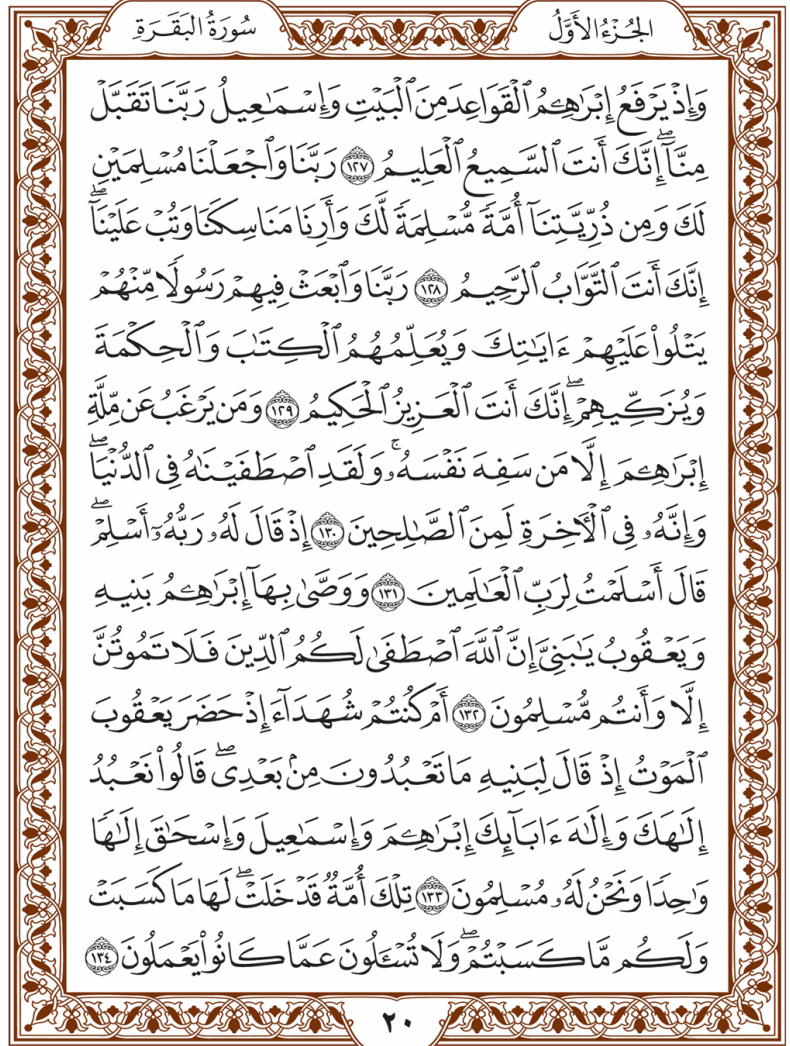 الجُزْءُ الأَوَّلُ
سُورَةُ البَقَرَةِ
وَإِذۡ يَرۡفَعُ إِبۡرَٰهِـۧمُ ٱلۡقَوَاعِدَ مِنَ ٱلۡبَيۡتِ وَإِسۡمَٰعِيلُ رَبَّنَا تَقَبَّلۡ
مِنَّآۖ إِنَّكَ أَنتَ ٱلسَّمِيعُ ٱلۡعَلِيمُ ١٢٧ رَبَّنَا وَٱجۡعَلۡنَا مُسۡلِمَيۡنِ
لَكَ وَمِن ذُرِّيَّتِنَآ أُمَّةٗ مُّسۡلِمَةٗ لَّكَ وَأَرِنَا مَنَاسِكَنَا وَتُبۡ عَلَيۡنَآۖ
إِنَّكَ أَنتَ ٱلتَّوَّابُ ٱلرَّحِيمُ ١٢٨ رَبَّنَا وَٱبۡعَثۡ فِيهِمۡ رَسُولٗا مِّنۡهُمۡ
يَتۡلُواْ عَلَيۡهِمۡ ءَايَٰتِكَ وَيُعَلِّمُهُمُ ٱلۡكِتَٰبَ وَٱلۡحِكۡمَةَ
وَيُزَكِّيهِمۡۖ إِنَّكَ أَنتَ ٱلۡعَزِيزُ ٱلۡحَكِيمُ ١٢٩ وَمَن يَرۡغَبُ عَن مِّلَّةِ
إِبۡرَٰهِـۧمَ إِلَّا مَن سَفِهَ نَفۡسَهُۥۚ وَلَقَدِ ٱصۡطَفَيۡنَٰهُ فِي ٱلدُّنۡيَاۖ
وَإِنَّهُۥ فِي ٱلۡأٓخِرَةِ لَمِنَ ٱلصَّٰلِحِينَ ١٣٠ إِذۡ قَالَ لَهُۥ رَبُّهُۥٓ أَسۡلِمۡۖ
قَالَ أَسۡلَمۡتُ لِرَبِّ ٱلۡعَٰلَمِينَ ١٣١ وَوَصَّىٰ بِهَآ إِبۡرَٰهِـۧمُ بَنِيهِ
وَيَعۡقُوبُ يَٰبَنِيَّ إِنَّ ٱللَّهَ ٱصۡطَفَىٰ لَكُمُ ٱلدِّينَ فَلَا تَمُوتُنَّ
إِلَّا وَأَنتُم مُّسۡلِمُونَ ١٣٢ أَمۡ كُنتُمۡ شُهَدَآءَ إِذۡ حَضَرَ يَعۡقُوبَ
ٱلۡمَوۡتُ إِذۡ قَالَ لِبَنِيهِ مَا تَعۡبُدُونَ مِنۢ بَعۡدِيۖ قَالُواْ نَعۡبُدُ
إِلَٰهَكَ وَإِلَٰهَ ءَابَآئِكَ إِبۡرَٰهِـۧمَ وَإِسۡمَٰعِيلَ وَإِسۡحَٰقَ إِلَٰهٗا
وَٰحِدٗا وَنَحۡنُ لَهُۥ مُسۡلِمُونَ ١٣٣ تِلۡكَ أُمَّةٞ قَدۡ خَلَتۡۖ لَهَا مَا كَسَبَتۡ
وَلَكُم مَّا كَسَبۡتُمۡۖ وَلَا تُسۡـَٔلُونَ عَمَّا كَانُواْ يَعۡمَلُونَ ١٣٤
٢٠